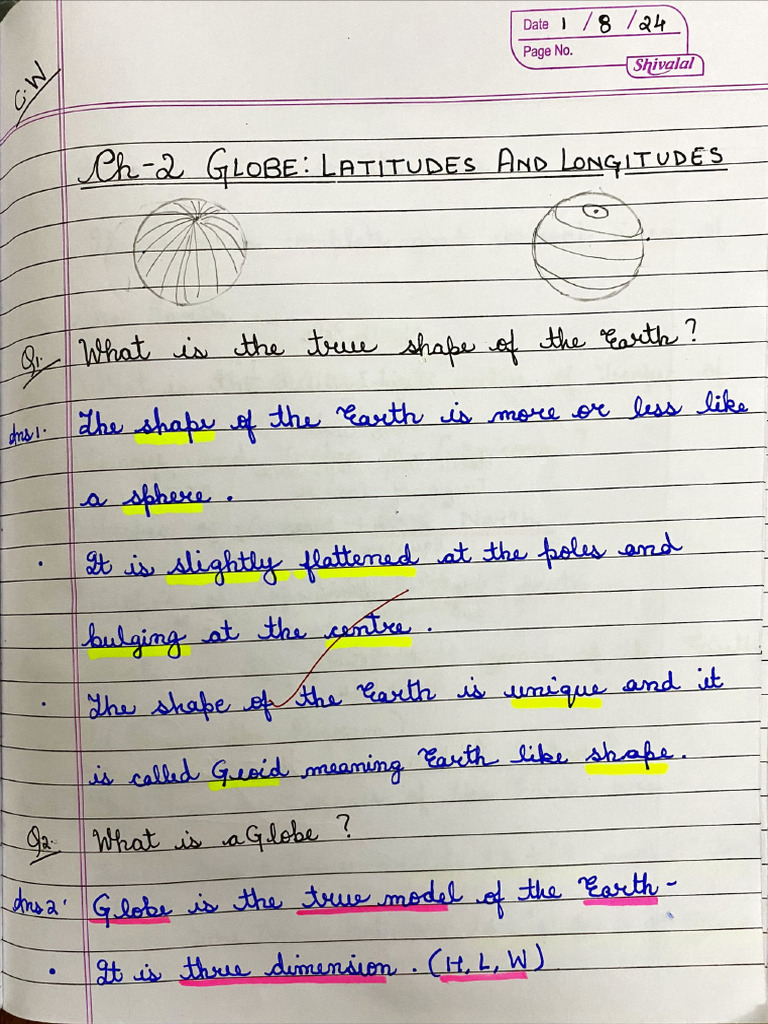 Date 1 / 8 / 24
Page No.
Shivalal
C.W
Ch-2 GLOBE: LATITUDES AND LONGITUDES
Q1. What is the true shape of the Earth?
Ans1. The shape of the Earth is more or less like
a sphere.
• It is slightly flattened at the poles and
bulging at the centre.
• The shape of the Earth is unique and it
is called Geoid meaning Earth like shape.
Q2. What is a Globe?
Ans2. Globe is the true model of the Earth-
• It is three dimension. (H, L, W)